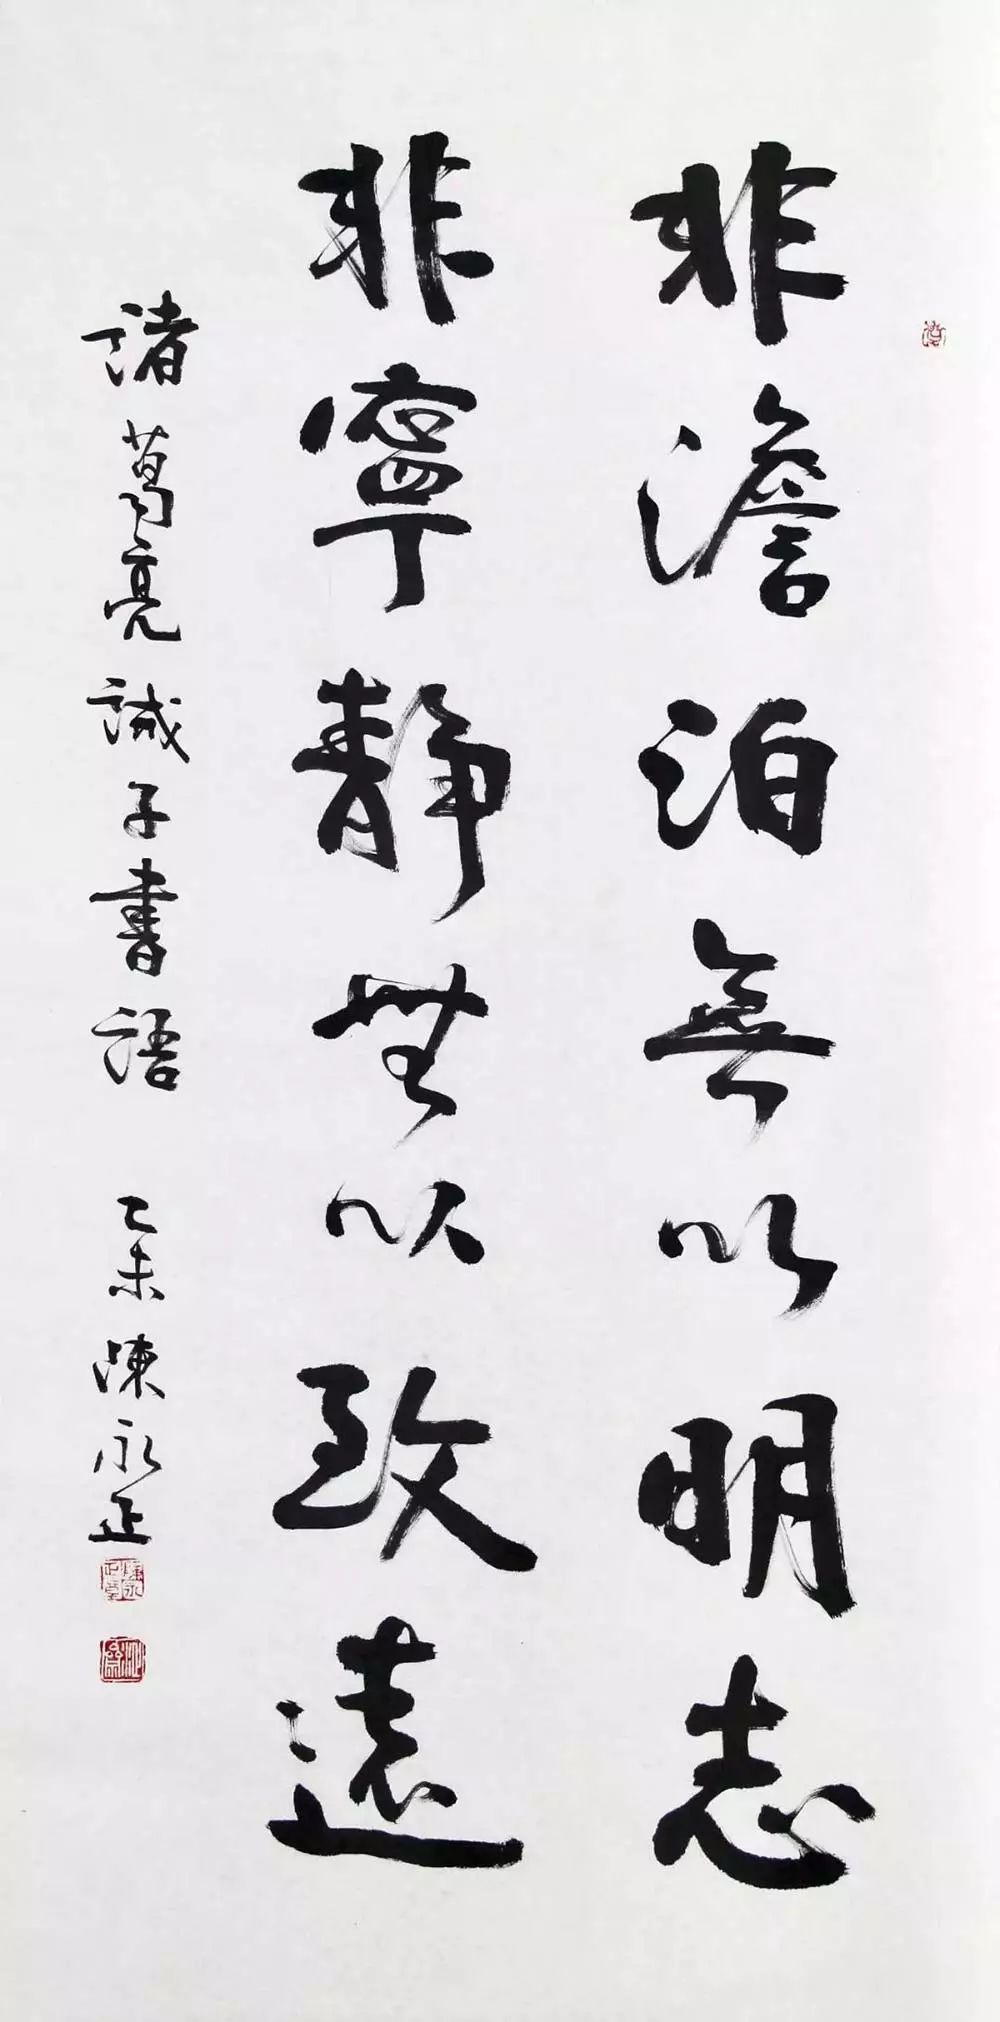 非澹泊無以明志
非寧靜無以致遠
諸葛亮誡子書語 乙未陳永正